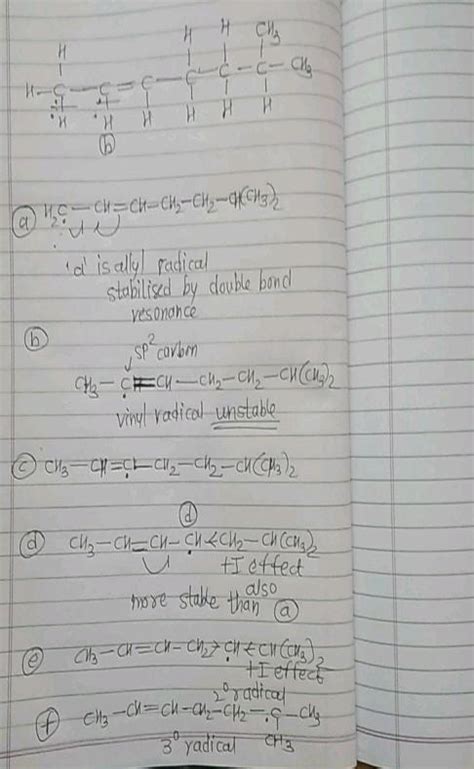 H H H CH3
H—C—C=C—C—C—C—CH3
H H H H H H
(b)
(a) H2C—CH=CH—CH2—CH2—CH(CH3)2
'a' is allyl radical
stabilised by double bond
resonance
(b)
sp2 carbon
CH3—C=CH—CH2—CH2—CH(CH3)2
vinyl radical unstable
(c) CH3—CH=C—CH2—CH2—CH(CH3)2
(d)
(d) CH3—CH=CH—CH<CH2—CH(CH3)2
+I effect
also
more stable than (a)
(e) CH3—CH=CH—CH2>CH<CH(CH3)2
+I effect
2° radical
(f) CH3—CH=CH—CH2—CH2—C—CH3
3° radical CH3